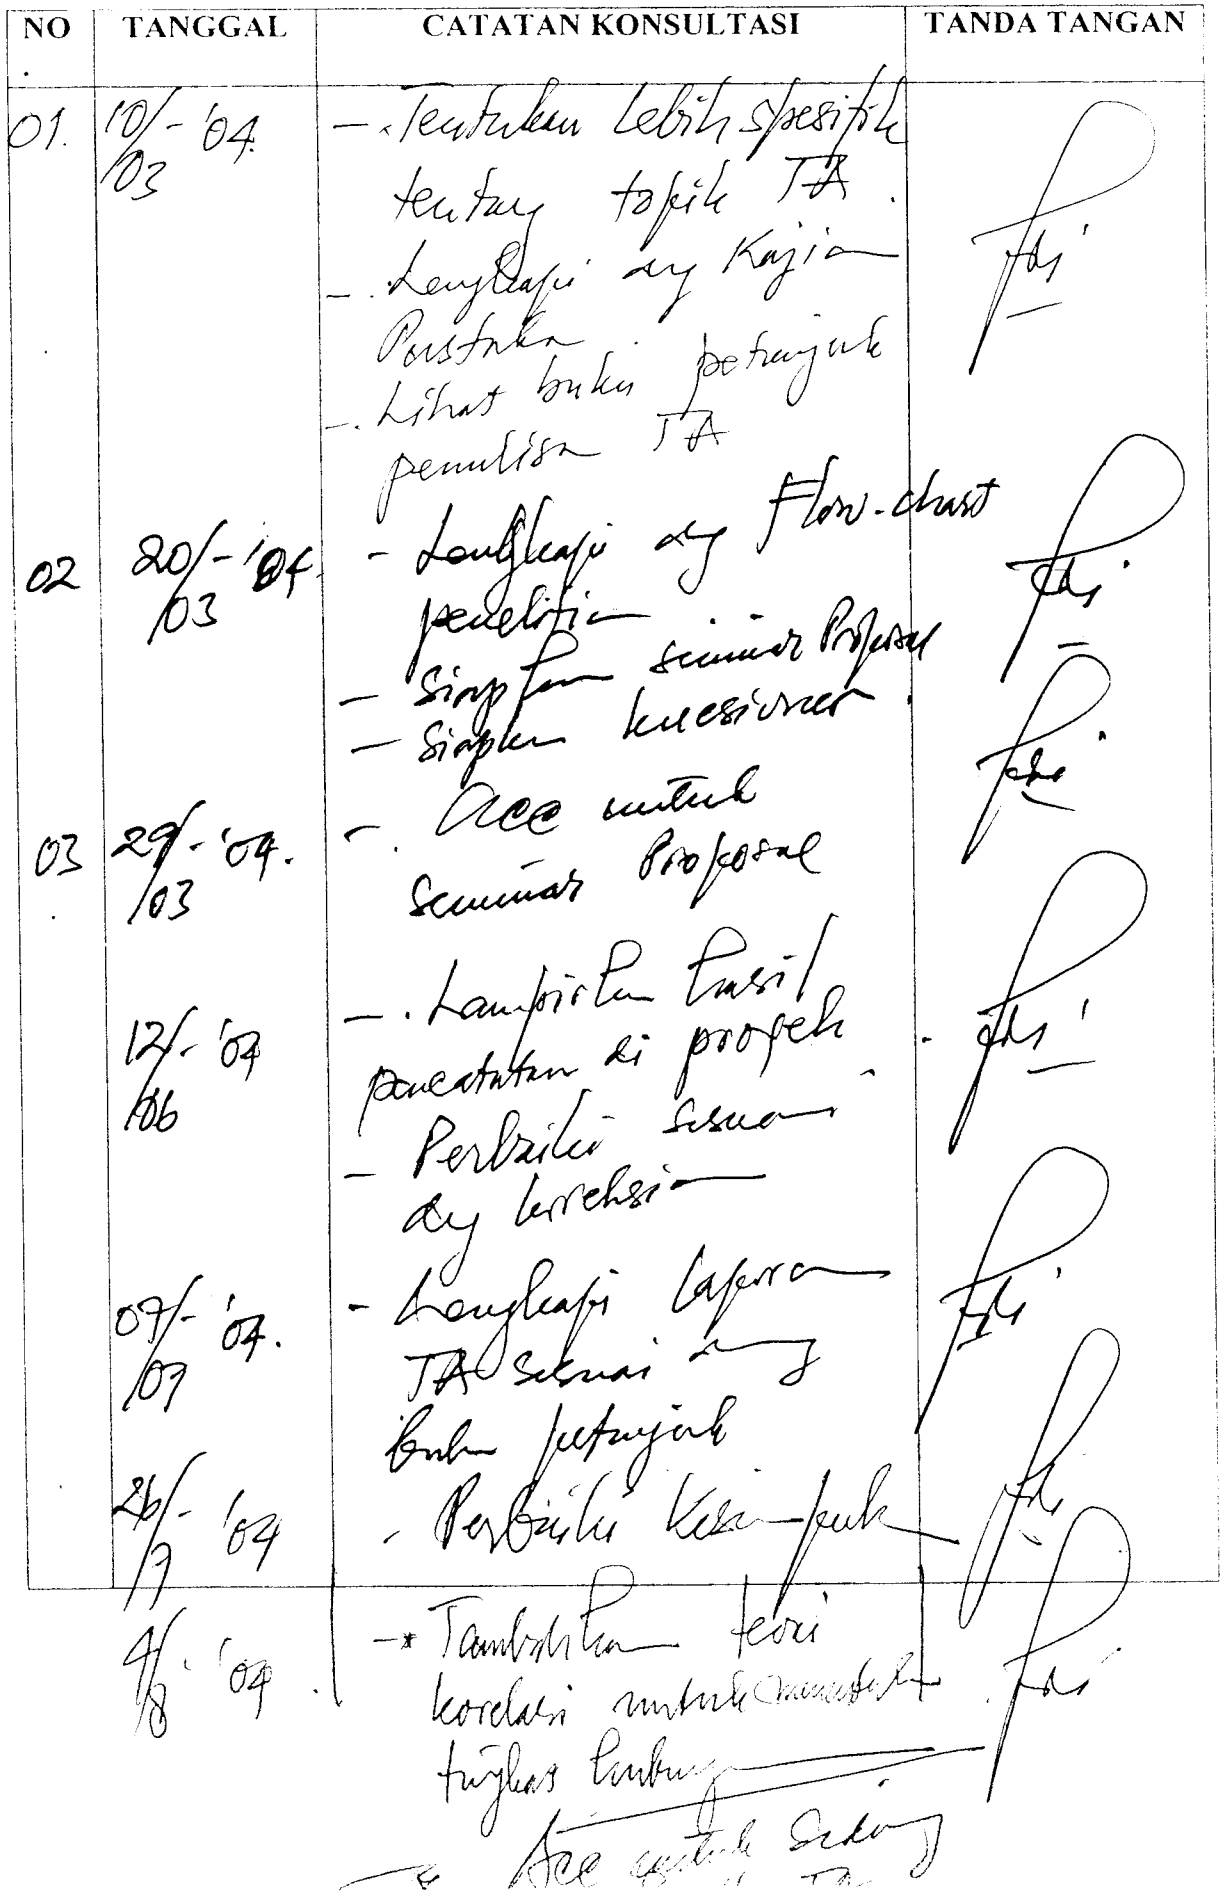 NO TANGGAL CATATAN KONSULTASI TANDA TANGAN
01. 10/03-'04 -. Tentukan lebih spesifik
tentang topik TA.
-. Lengkapi dng Kajian
Pustaka.
-. Lihat buku petunjuk
penulisan TA
02 20/03-'04 - Lengkapi dng Flow-chart
penelitian
- Siapkan seminar Proposal
- Siapkan kuesioner.
03 29/03-'04. -. Acc untuk
Seminar Proposal
12/06-'04 -. Lampirkan hasil
pencatatan di proyek.
- Perbaiki sesuai
dng koreksian
07/07-'04. - Lengkapi laporan
TA sesuai dng
buku petunjuk
26/7-'04 - Perbaiki Kesimpulan
4/8-'04. -* Tambahkan teori
korelasi untuk
tingkat hubungan
Acc untuk Sidang
TA